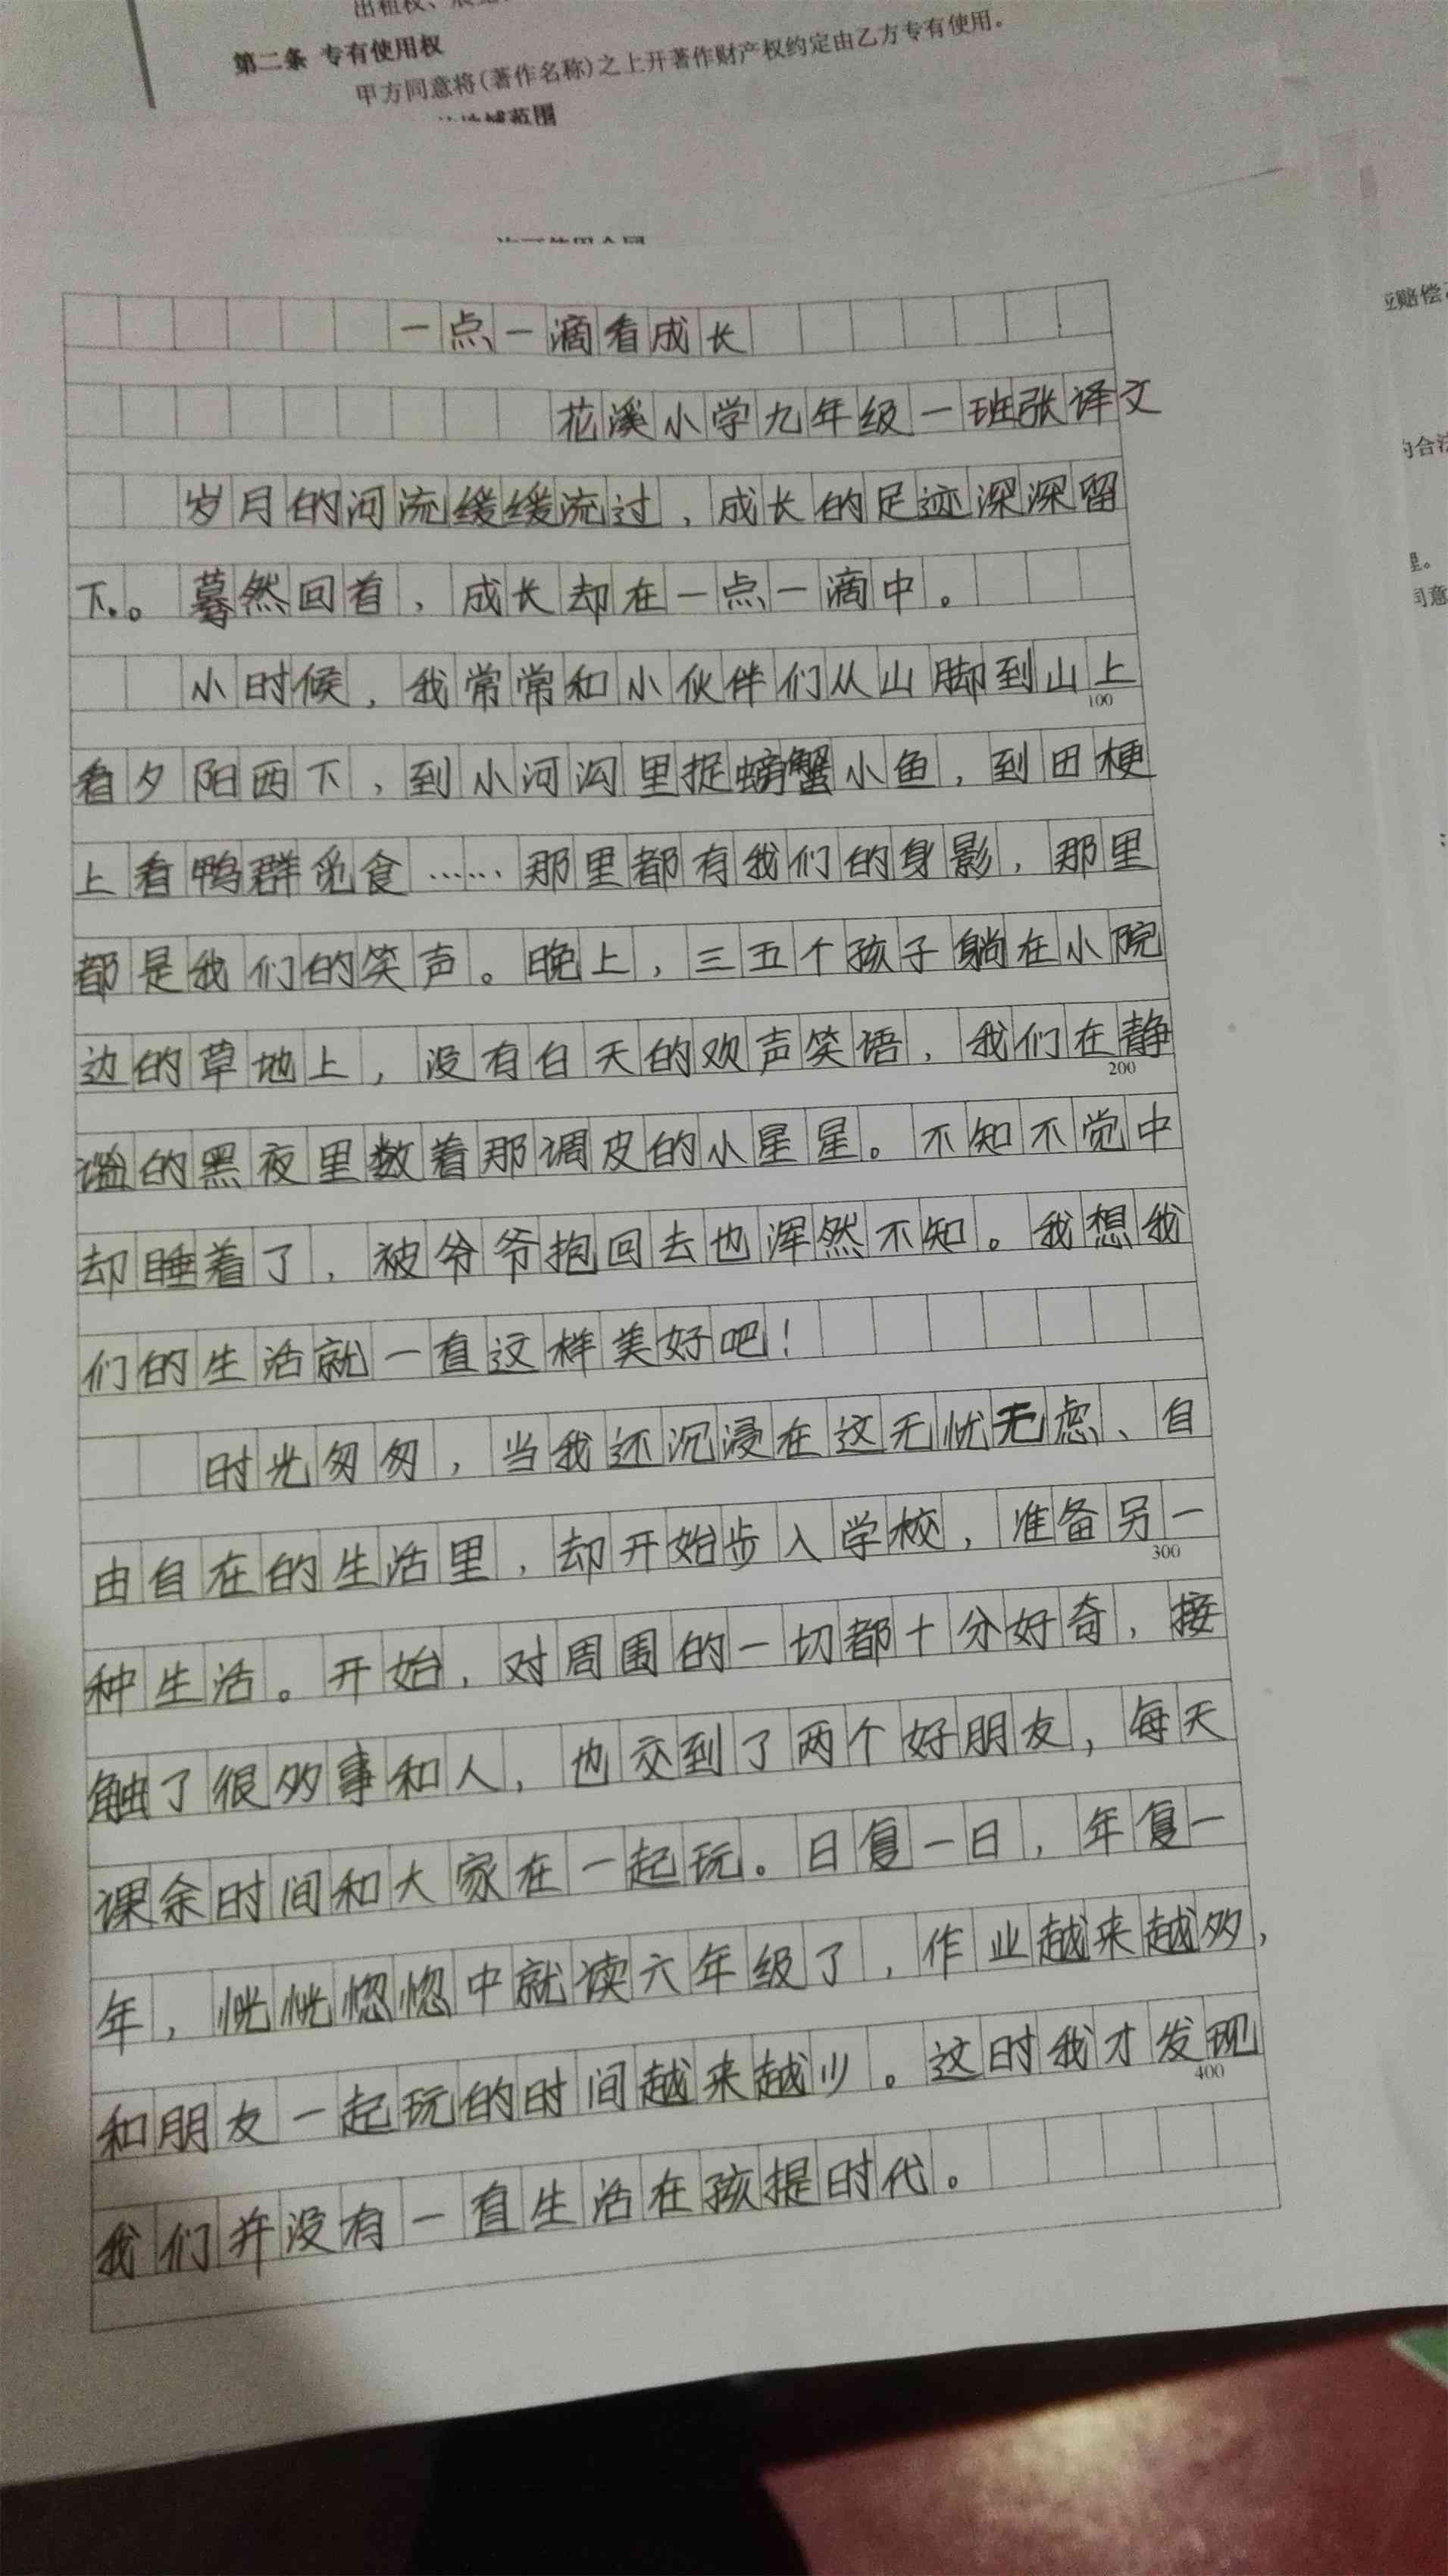 第二条 专有使用权
甲方同意将(著作名称)之上开著作财产权约定由乙方专有使用。
范围
赔偿
同意
一点一滴看成长
花溪小学九年级一班张译文
岁月的河流缓缓流过，成长的足迹深深留
下。。蓦然回首，成长却在一点一滴中。
小时候，我常常和小伙伴们从山脚到山上
100
看夕阳西下，到小河沟里捉螃蟹小鱼，到田梗
上看鸭群觅食……那里都有我们的身影，那里
都是我们的笑声。晚上，三五个孩子躺在小院
边的草地上，没有白天的欢声笑语，我们在静
200
谧的黑夜里数着那调皮的小星星。不知不觉中
却睡着了，被爷爷抱回去也浑然不知。我想我
们的生活就一直这样美好吧！
时光匆匆，当我还沉浸在这无忧无虑、自
由自在的生活里，却开始步入学校，准备另一
300
种生活。开始，对周围的一切都十分好奇，接
触了很多事和人，也交到了两个好朋友，每天
课余时间和大家在一起玩。日复一日，年复一
年，恍恍惚惚中就读六年级了，作业越来越多，
和朋友一起玩的时间越来越少。这时我才发现
400
我们并没有一直生活在孩提时代。